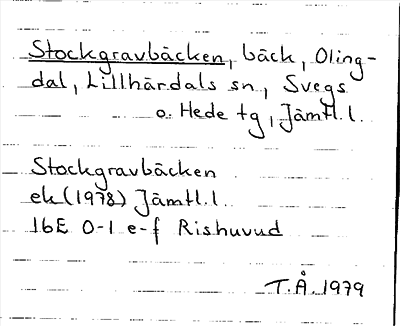 Stockgravbäcken, bäck, Oling-
dal, Lillhärdals sn, Svegs
o. Hede tg, Jämtl. l.
Stockgravbäcken
ek (1978) Jämtl. l.
16E 0-1 e-f Rishuvud
T.Å. 1979